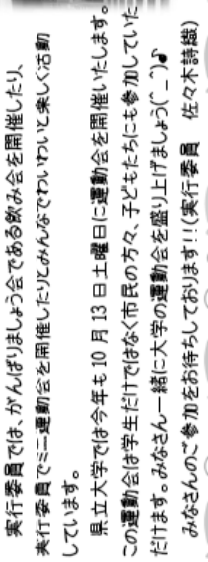 実行委員では、がんばりましょう会である飲み会を開催したり、
実行委員でミニ運動会を開催したりとみんなでわいわいと楽しく活動
しています。
県立大学では今年も10月13日土曜日に運動会を開催いたします。
この運動会は学生だけではなく市民の方々、子どもたちにも参加していた
だけます。みなさん一緒に大学の運動会を盛り上げましょう(^_^)♪
みなさんのご参加をお待ちしております!!(実行委員 佐々木詩織)